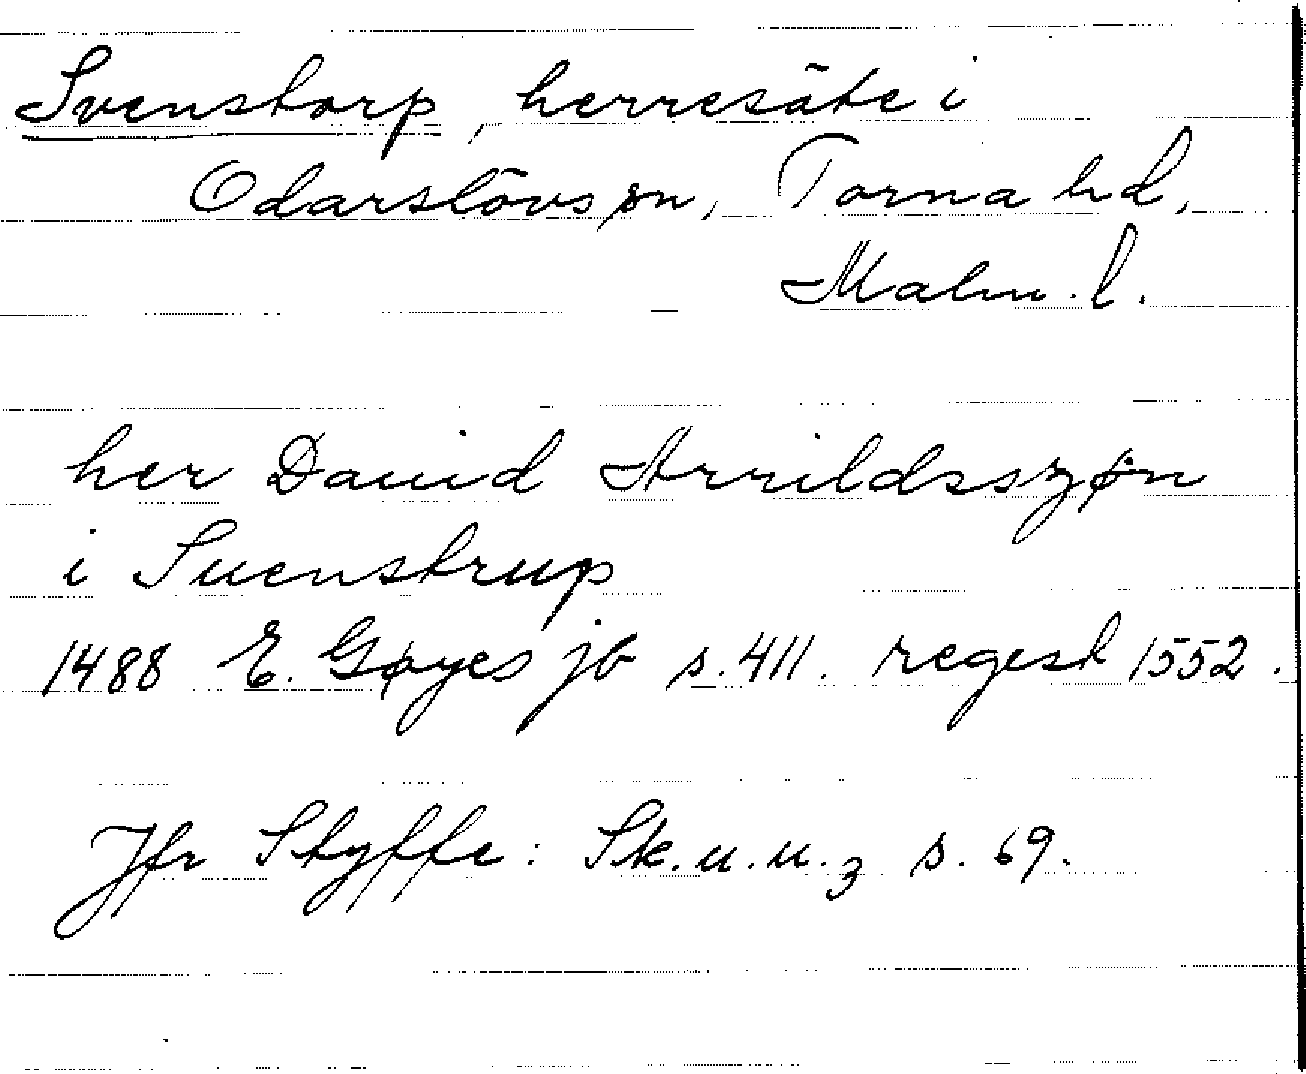 Svenstorp, herresäte i
Odarslövs sn, Torna hd,
Malm. l.
her Dauid Arrildsszøn
i Suenstrup
1488 E. Gøyes jb s. 411. regest 1552.
Jfr Styffe: Sk.u.u.3 s. 69.